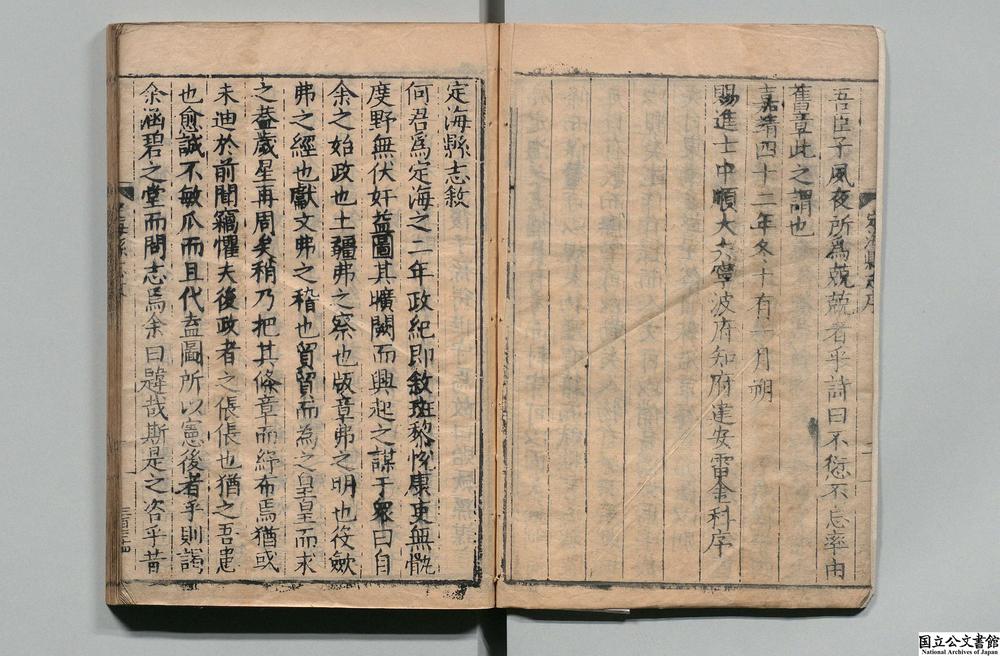 吾臣子夙夜所為兢兢者乎詩曰不愆不忘率由
舊章此之謂也
嘉靖四十二年冬十有一月朔
賜進士中順大夫寧波府知府建安雷金科序
定海縣志敘
何君為定海之二年政紀即敘斑黎悅康吏無骫
度野無伏奸益圖其曠闕而興起之謀于衆曰自
余之始政也土疆弗之察也版章弗之明也伎歛
弗之經也獻文弗之稽也貿貿而為之皇皇而求
之葢歲星再周矣稍乃把其條章而紓布焉猶或
未迪於前聞竊懼夫後政者之倀倀也猶之吾耄
也愈誠不敏瓜而且代盍圖所以憲後者乎則謁
余涵碧之堂而問志焉余曰韙哉斯是之咨乎昔
国立公文書館
National Archives of Japan